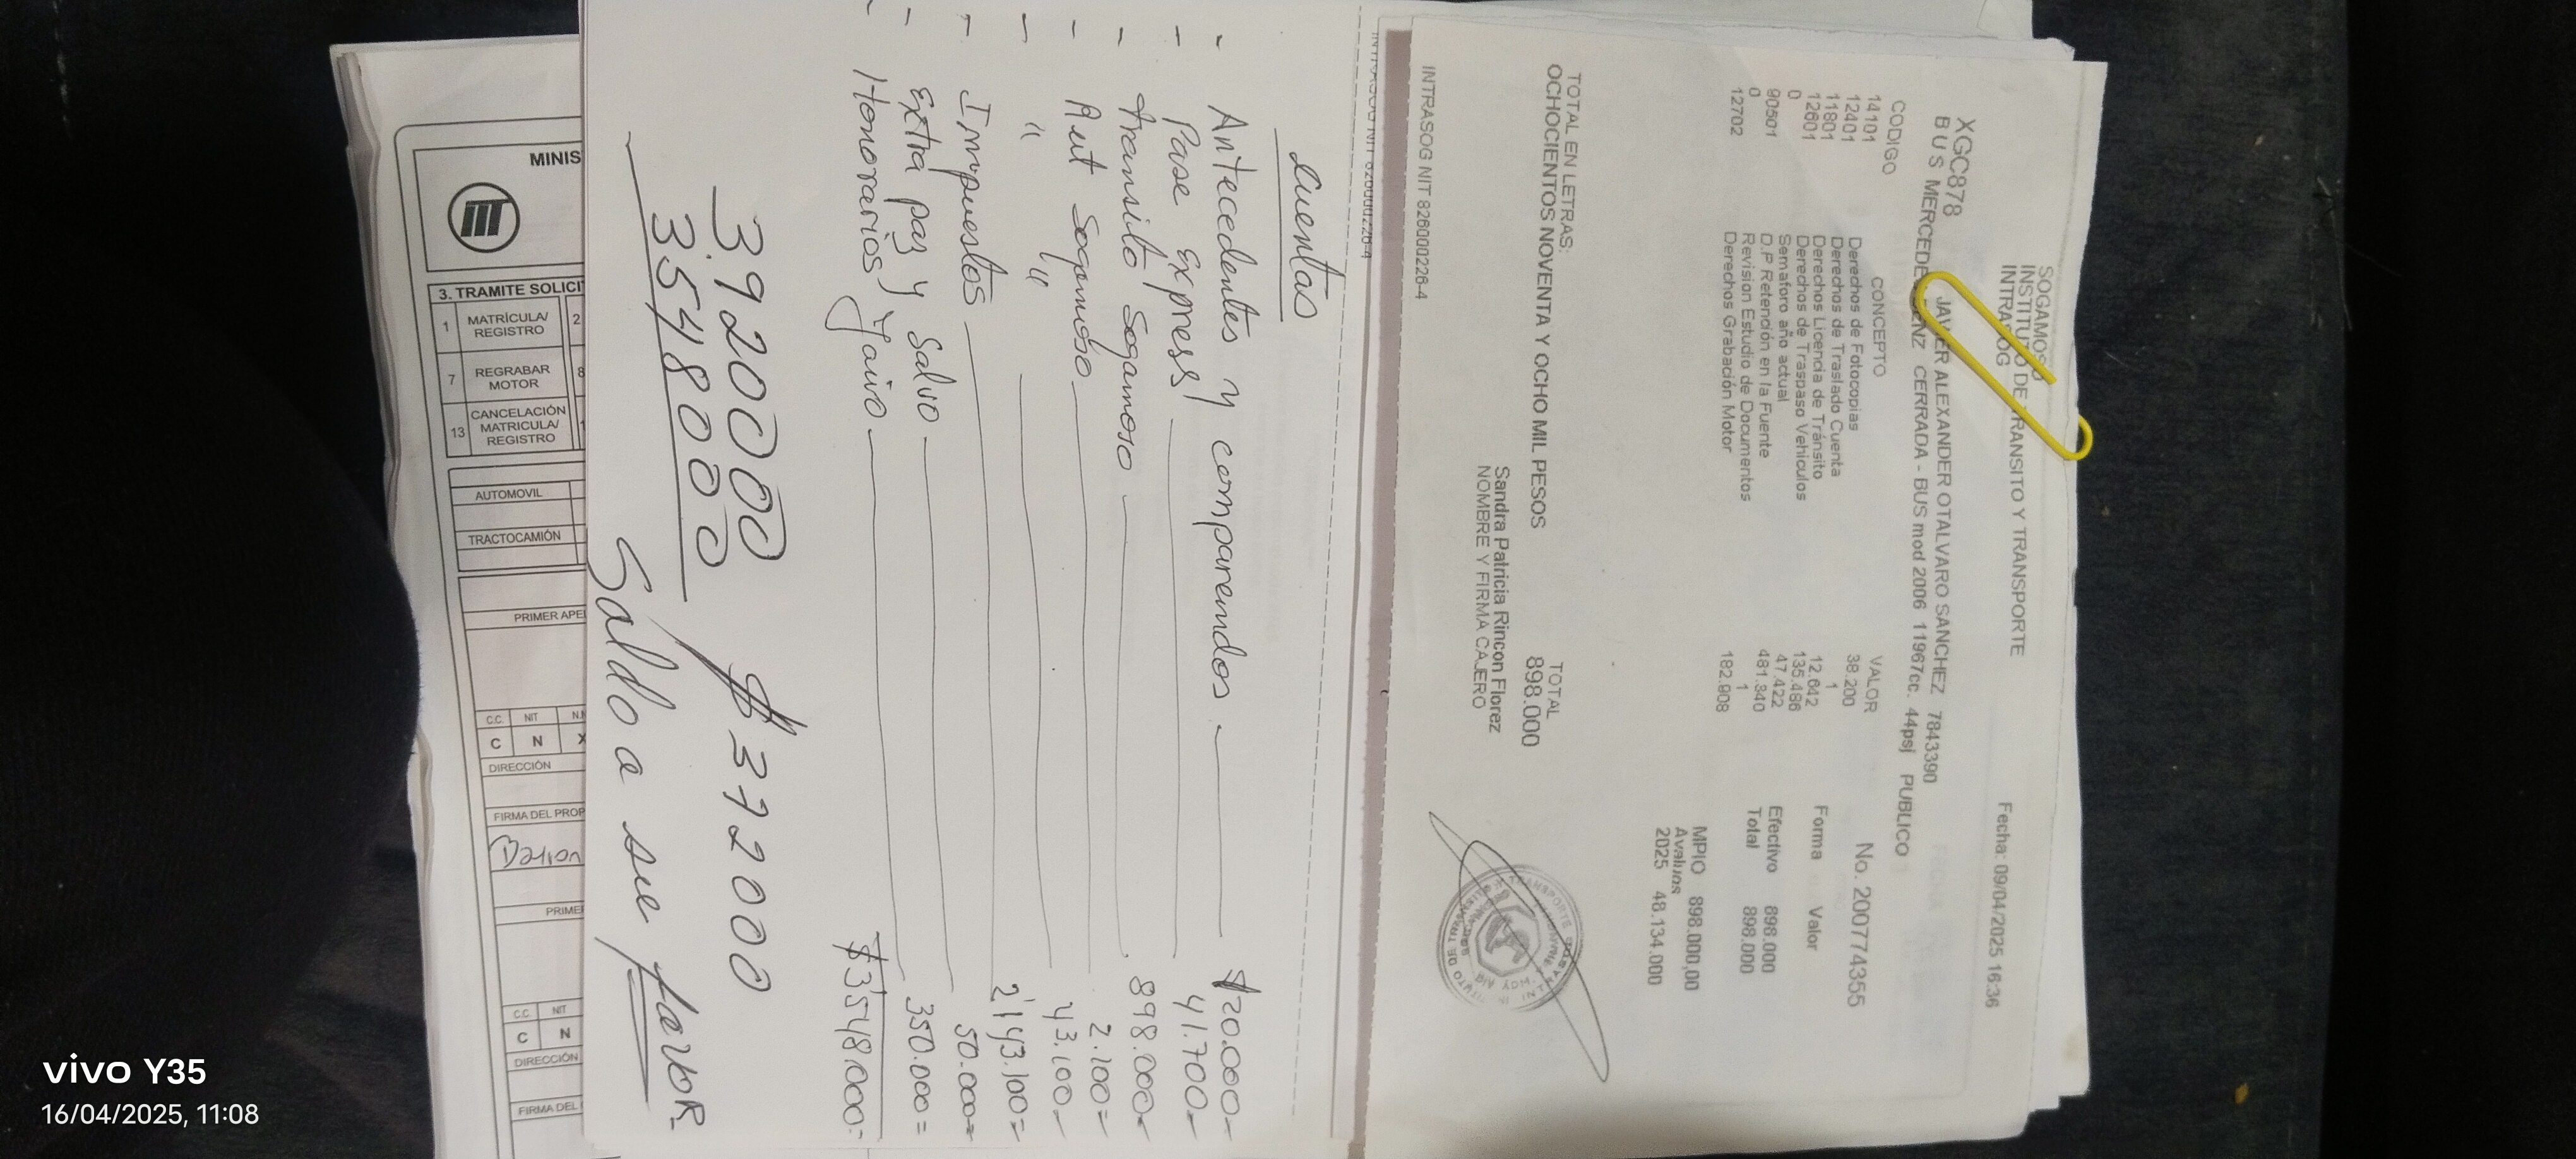 SOGAMOSO
INSTITUTO DE TRANSITO Y TRANSPORTE
INTRASOG
Fecha: 09/04/2025 16:36
XGC878 JAVIER ALEXANDER OTALVARO SANCHEZ 7843390
BUS MERCEDES BENZ CERRADA - BUS mod 2006 11967cc. 44psj PUBLICO
No. 200774355
CODIGO CONCEPTO VALOR
14101 Derechos de Fotocopias 38.200
12401 Derechos de Traslado Cuenta 1
11801 Derechos Licencia de Tránsito 12.642
12601 Derechos de Traspaso Vehiculos 135.486
0 Semaforo año actual 47.422
90501 D.P Retención en la Fuente 481.340
0 Revision Estudio de Documentos 1
12702 Derechos Grabación Motor 182.908
Forma Valor
Efectivo 898.000
Total 898.000
MPIO 898.000,00
Avaluos
2025 48.134.000
TOTAL EN LETRAS: TOTAL
OCHOCIENTOS NOVENTA Y OCHO MIL PESOS 898.000
Sandra Patricia Rincon Florez
NOMBRE Y FIRMA CAJERO
INTRASOG NIT 826000226-4
INTRASOG NIT 826000226-4
Cuentas
- Antecedentes y comparendos — $20.000=
- Pase Expres — 41.700=
- transito Sogamoso — 898.000=
- Aut Sogamoso — 2.100=
- " " — 43.100=
- Impuestos — 2'143.100=
- Extra paz y Salvo — 50.000=
- Honorarios Yairo — 350.000=
$3'548.000=
3920000 $372000
3.548000
Saldo a su favor
MINIS
3. TRAMITE SOLICI
1 MATRÍCULA/ REGISTRO 2
7 REGRABAR MOTOR 8
13 CANCELACIÓN MATRICULA/ REGISTRO
AUTOMOVIL
TRACTOCAMIÓN
PRIMER APE
C.C. NIT N.N
C N X
DIRECCIÓN
FIRMA DEL PROP
PRIME
C.C. NIT
C N
DIRECCIÓN
FIRMA DEL
vivo Y35
16/04/2025, 11:08